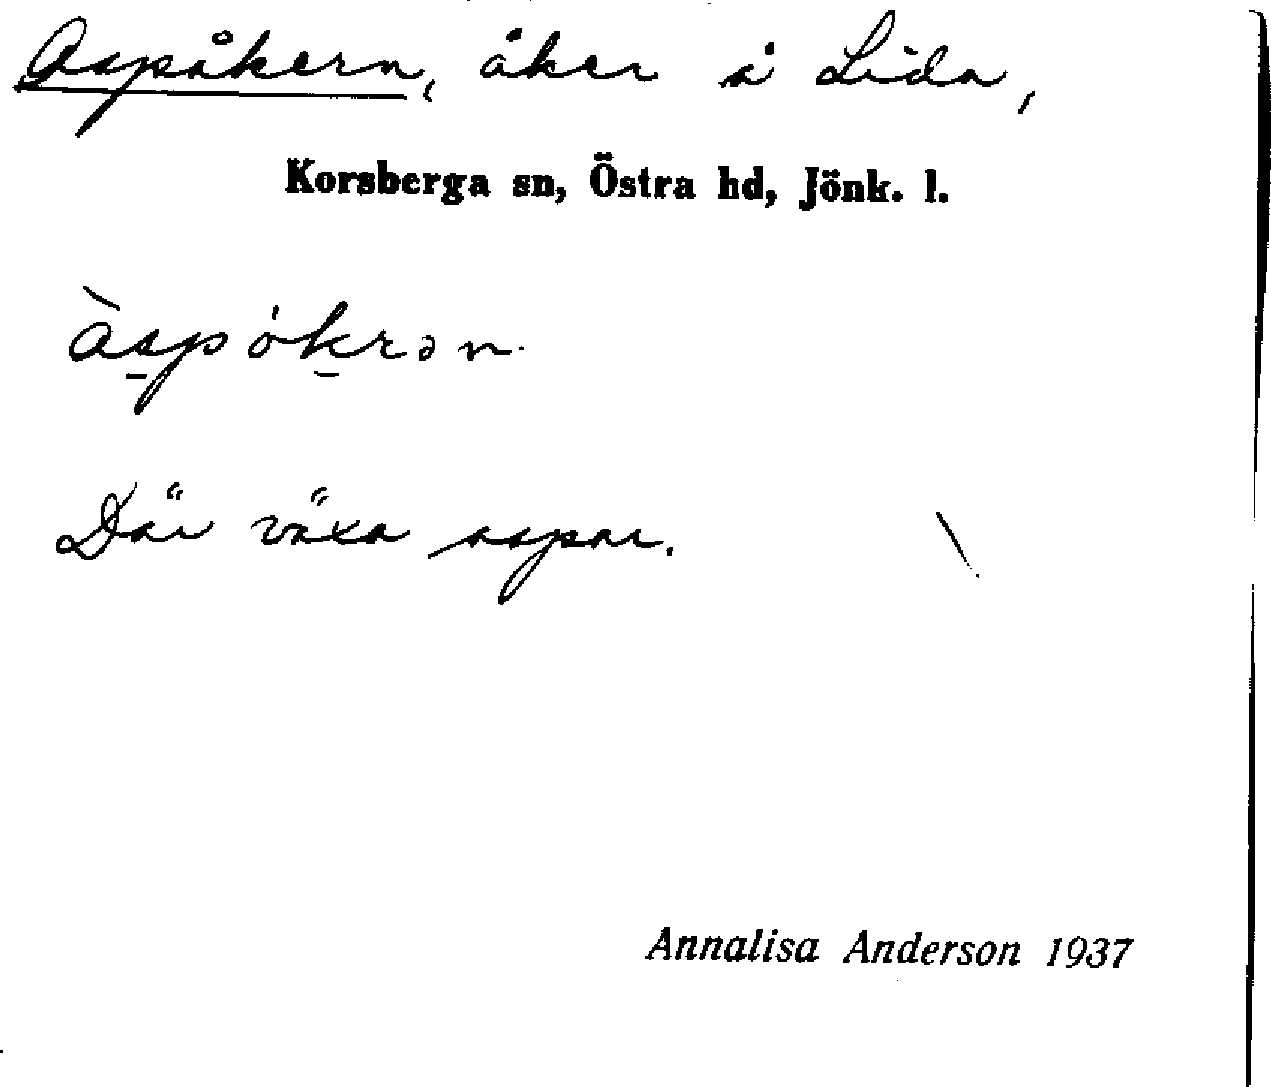 Aspåkern, åker å Lida,
Korsberga sn, Östra hd, Jönk. l.
àspókrən.
Där växa aspar.
Annalisa Anderson 1937